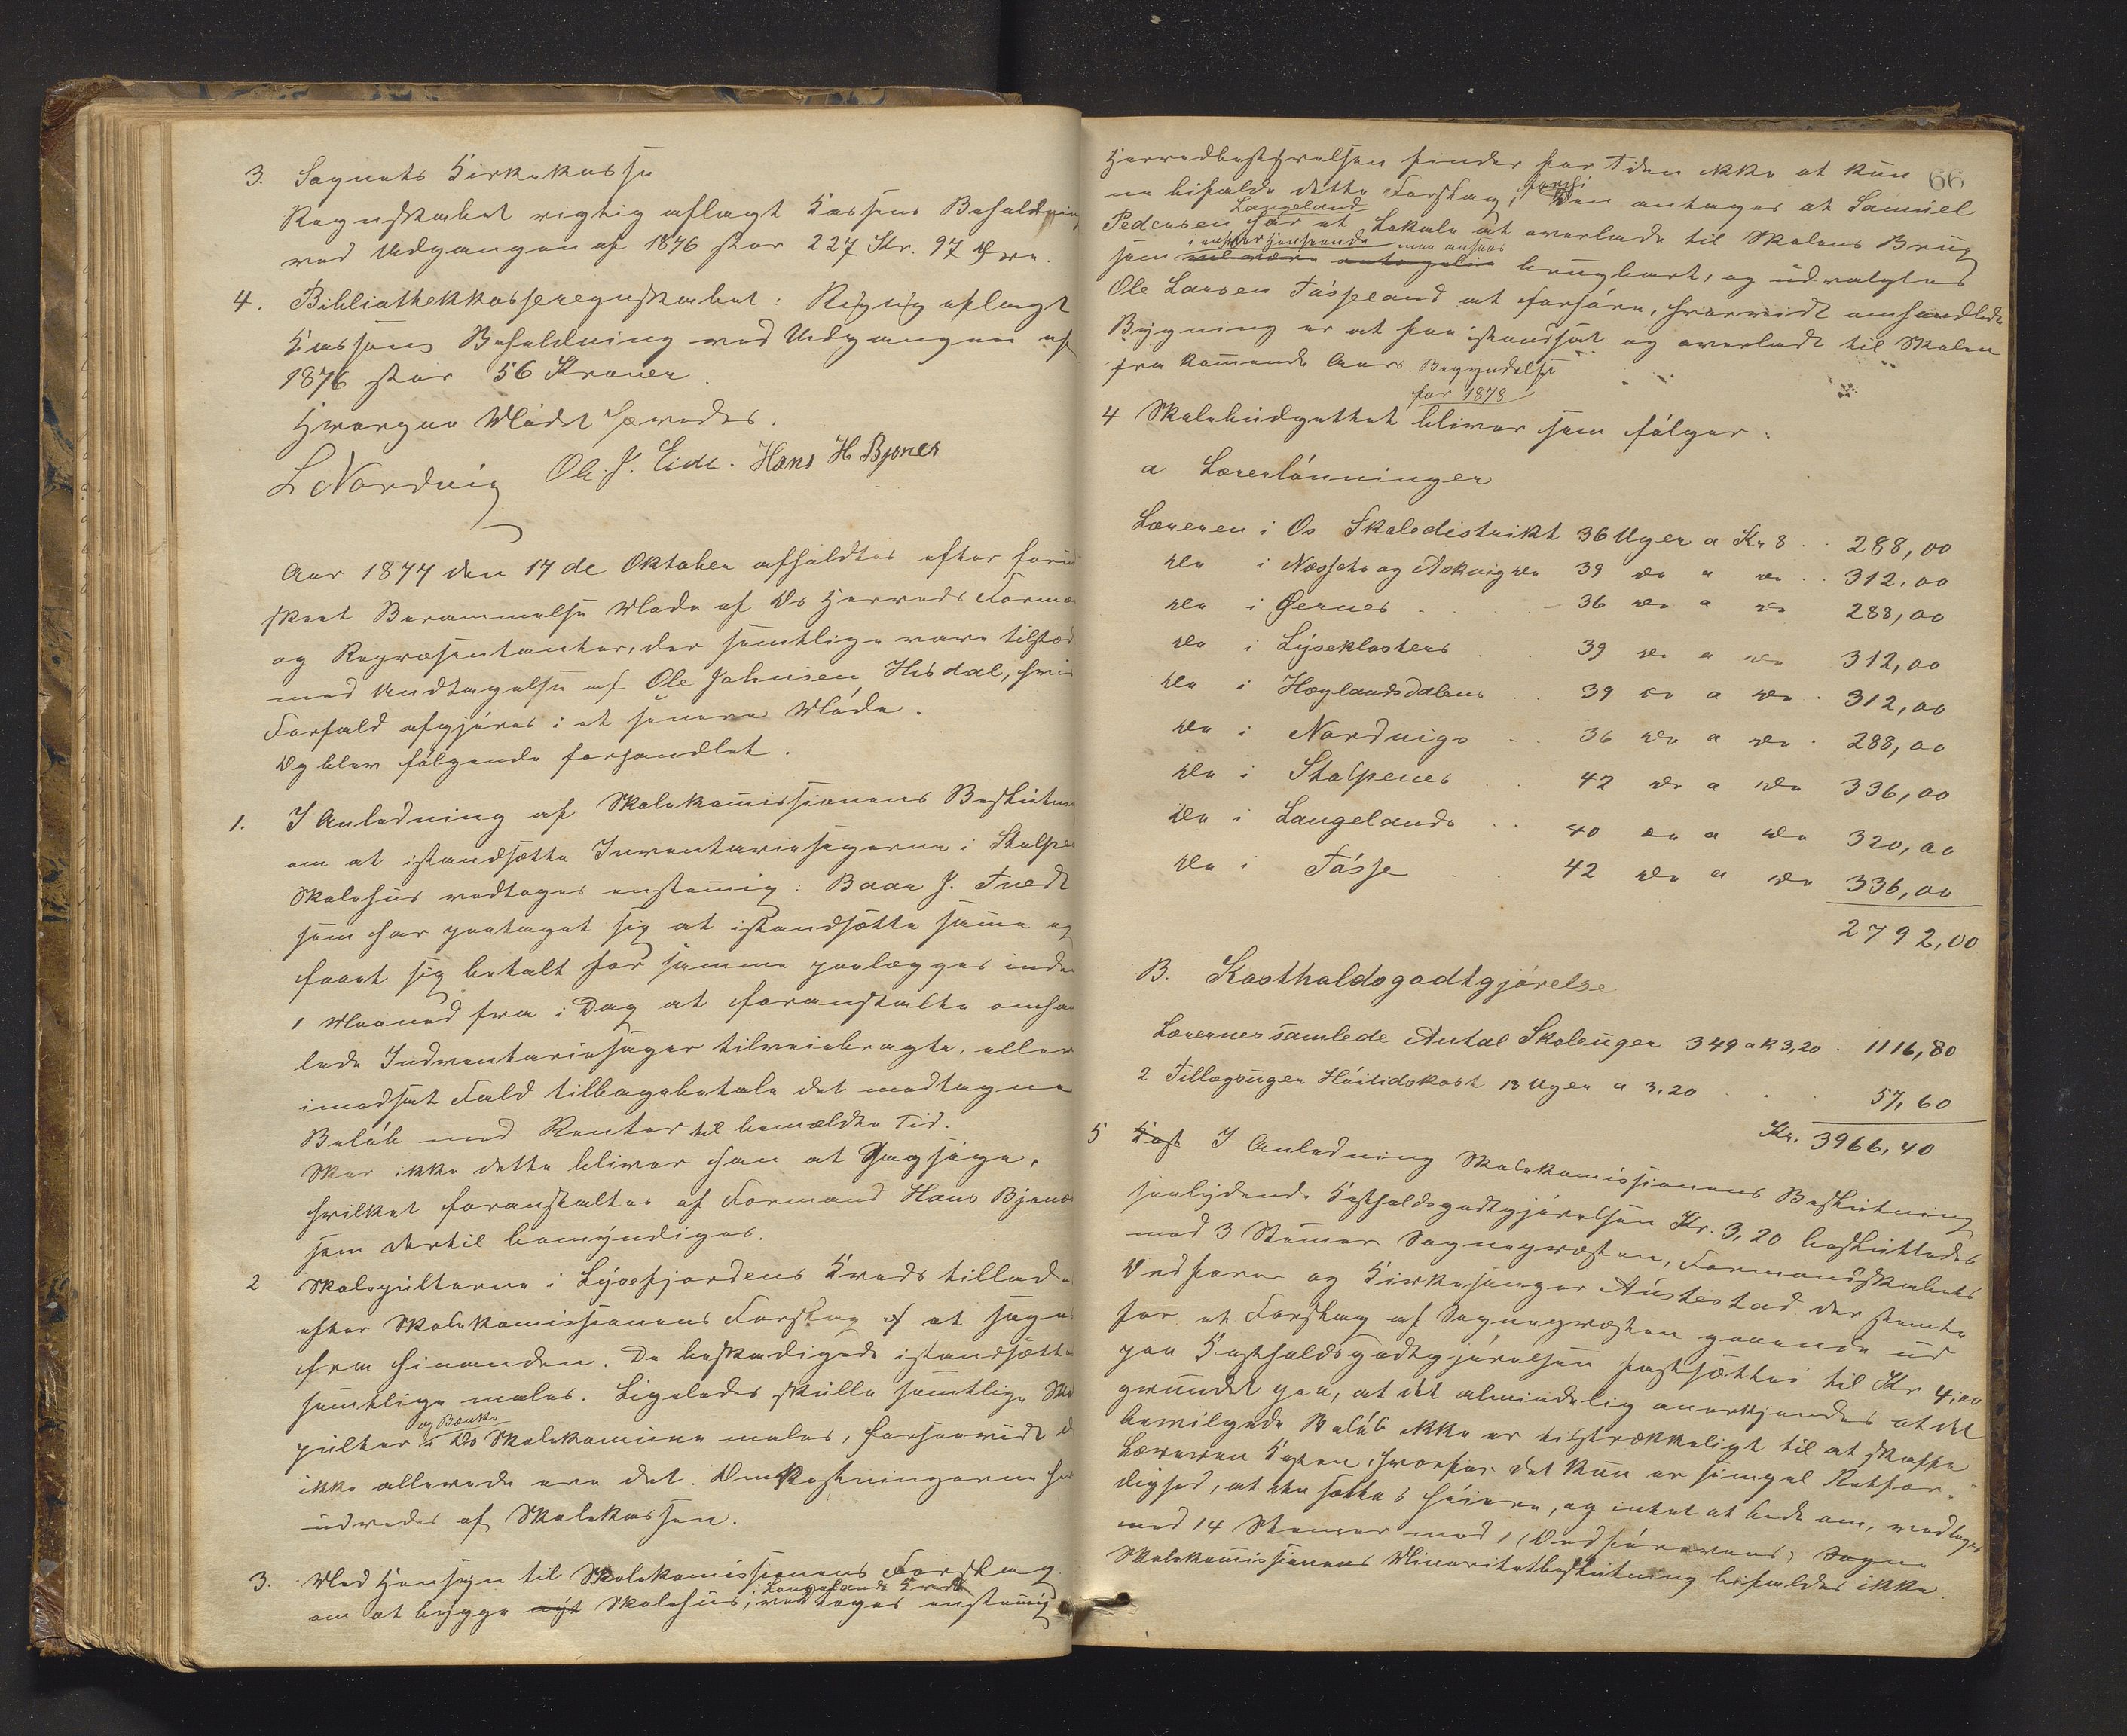 3. Sognets Kirkekasse
Regnskabet rigtig aflagt Kassens Beholdning
ved Udgangen af 1876 stor 227 Kr. 97 Øre.
4. Bibliothekkasseregnskabet: Rigtig aflagt
Kassens Beholdning ved Udgangen af
1876 stor 56 Kroner.
Hvorpaa Mødet hævedes.
L Nordvig Ole J. Eide. Hans H Bjønes
Aar 1877 den 17 de Oktober afholdtes efter forud
skeet Berammelse Møde af Os Herreds Forma
og Repræsentanter, der samtlige vare tilsted
med Undtagelse af Ole Johnsen Hisdal, hvis
Forfald afgjøres i et senere Møde.
Og blev følgende forhandlet.
1. I Anledning af Skolekomissionens Beslutn
om at istandsætte Inventariesagerne i Stolpe
Skolehus vedtoges enstemmig: Baar J. Tvedt
som har paataget sig at istandsætte samme og
faaet sig betalt for samme paalægges inden
1 Maaned fra i Dag at foranstalte omhan
lede Indventariesager tilveiebragte, eller
imodsat Fald tilbagebetale det modtagne
Beløb med Renter til bemældte Tid.
Sker ikke dette bliver han at Sagsøge,
hvilket foranstaltes af Formand Hans Bjønes
som dertil bemyndiges.
2 Skolepulterne i Lysefjordens Kreds tillades
efter Skolekomissionens Forslag af at sage
fra hinanden. De beskadigede istandsættes
samtlige males. Ligeledes skulle samtlige Sko
og Bænke
pulter i Os Skolekomune males, forsaavidt d
ikke allerede ere det. Omkostningerne her
udredes af Skolekassen.
3. Med Hensyn til Skolekomissionens Forslag
i Langelands Kreds
om at bygge nyt Skolehus, vedtoges enstemmig
66
Herredbestyrelsen finder for Tiden ikke at kun
ne bifalde dette Forslag, fordi Den antages at Samuel
Langeland
Pedersen har et Lokale at overlade til Skolens Brug
i enhver Henseende maa ansees
som vel være antagelig brugbart, og udvalgtes
Ole Larsen Tøsseland at erfare, hvorvidt omhandlede
Bygning er at faa istandsat og overladt til Skolen
fra kommende Aars Begyndelse
for 1878
4 Skolebudgettet bliver som følger:
a Lærerlønninger
Læreren i Os Skoledistrikt 36 Uger a Kr 8 . . 288,00
do i Næssets og Askvig do 39 do a do . . 312,00
do i Øernes . . . 36 do a do 288,00
do i Lyseklosters . . 39 do a do 312,00
do i Hæglandsdalens . . 39 do a do . 312,00
do i Nordvigs . . 36 do a do . 288,00
do i Stolpenes . . 42 do a do 336,00
do i Langelands . . 40 do a do 320,00
do i Tøsse . . 42 do a do 336,00
2792,00
B. Kostholdsgodtgjørelse
Lærernes samlede Antal Skoleuger 349 a K 3,20 . 1116,80
2 Tillægsuger Høitidskost 18 Uger a 3,20 . . . 57,60
Kr. 3966,40
5 Kost I Anledning Skolekomissionens Beslutning
saalydende Kostholdsgodtgjørelsen Kr. 3,20 besluttedes
med 3 Stemmer Sognepræsten, Formandskabets
Ordfører og Kirkesanger Austestad der stemte
for et Forslag af Sognepræsten gaaende ud
paa Kostholdsgodtgjørelsen fastsættes til Kr 4,00
grundet paa, at det almindelig anerkjendes at det
bevilgede Beløb ikke er tilstrækkeligt til at skaffe
Læreren Kosten, hvorfor det kun er simpel Retfær-
dighed, at den sættes høiere, og intet at bede om, vedtoges
med 14 Stemmer mod 1 (Ordførerens) Sogne
Skolekomissionens Minoritetbeslutning bifaldes ikke.